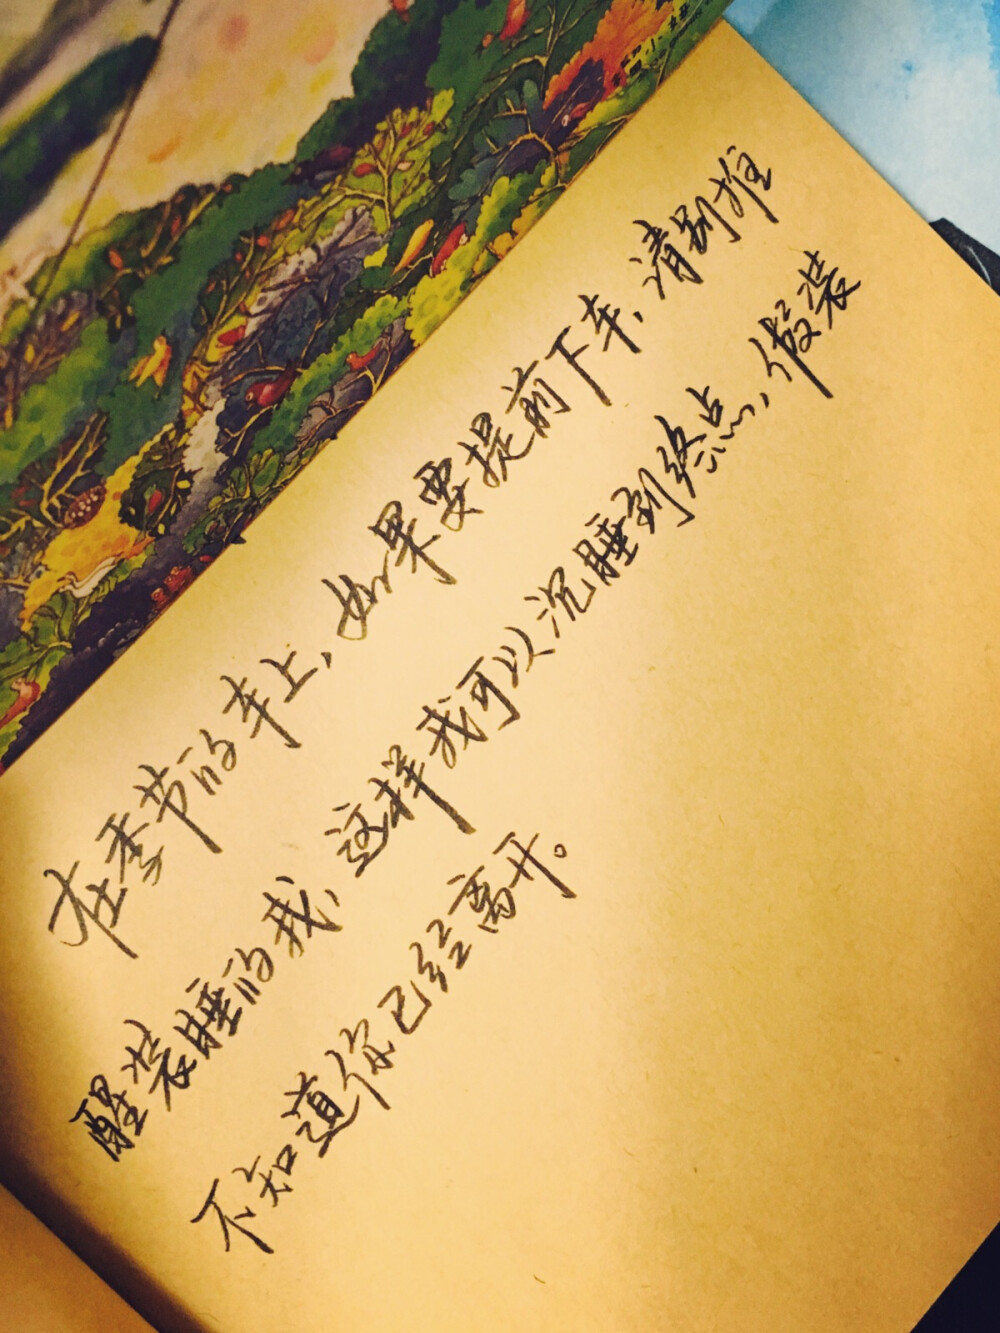 在季节的车上，如果要提前下车，请别推
醒装睡的我，这样我可以沉睡到终点，假装
不知道你已经离开。